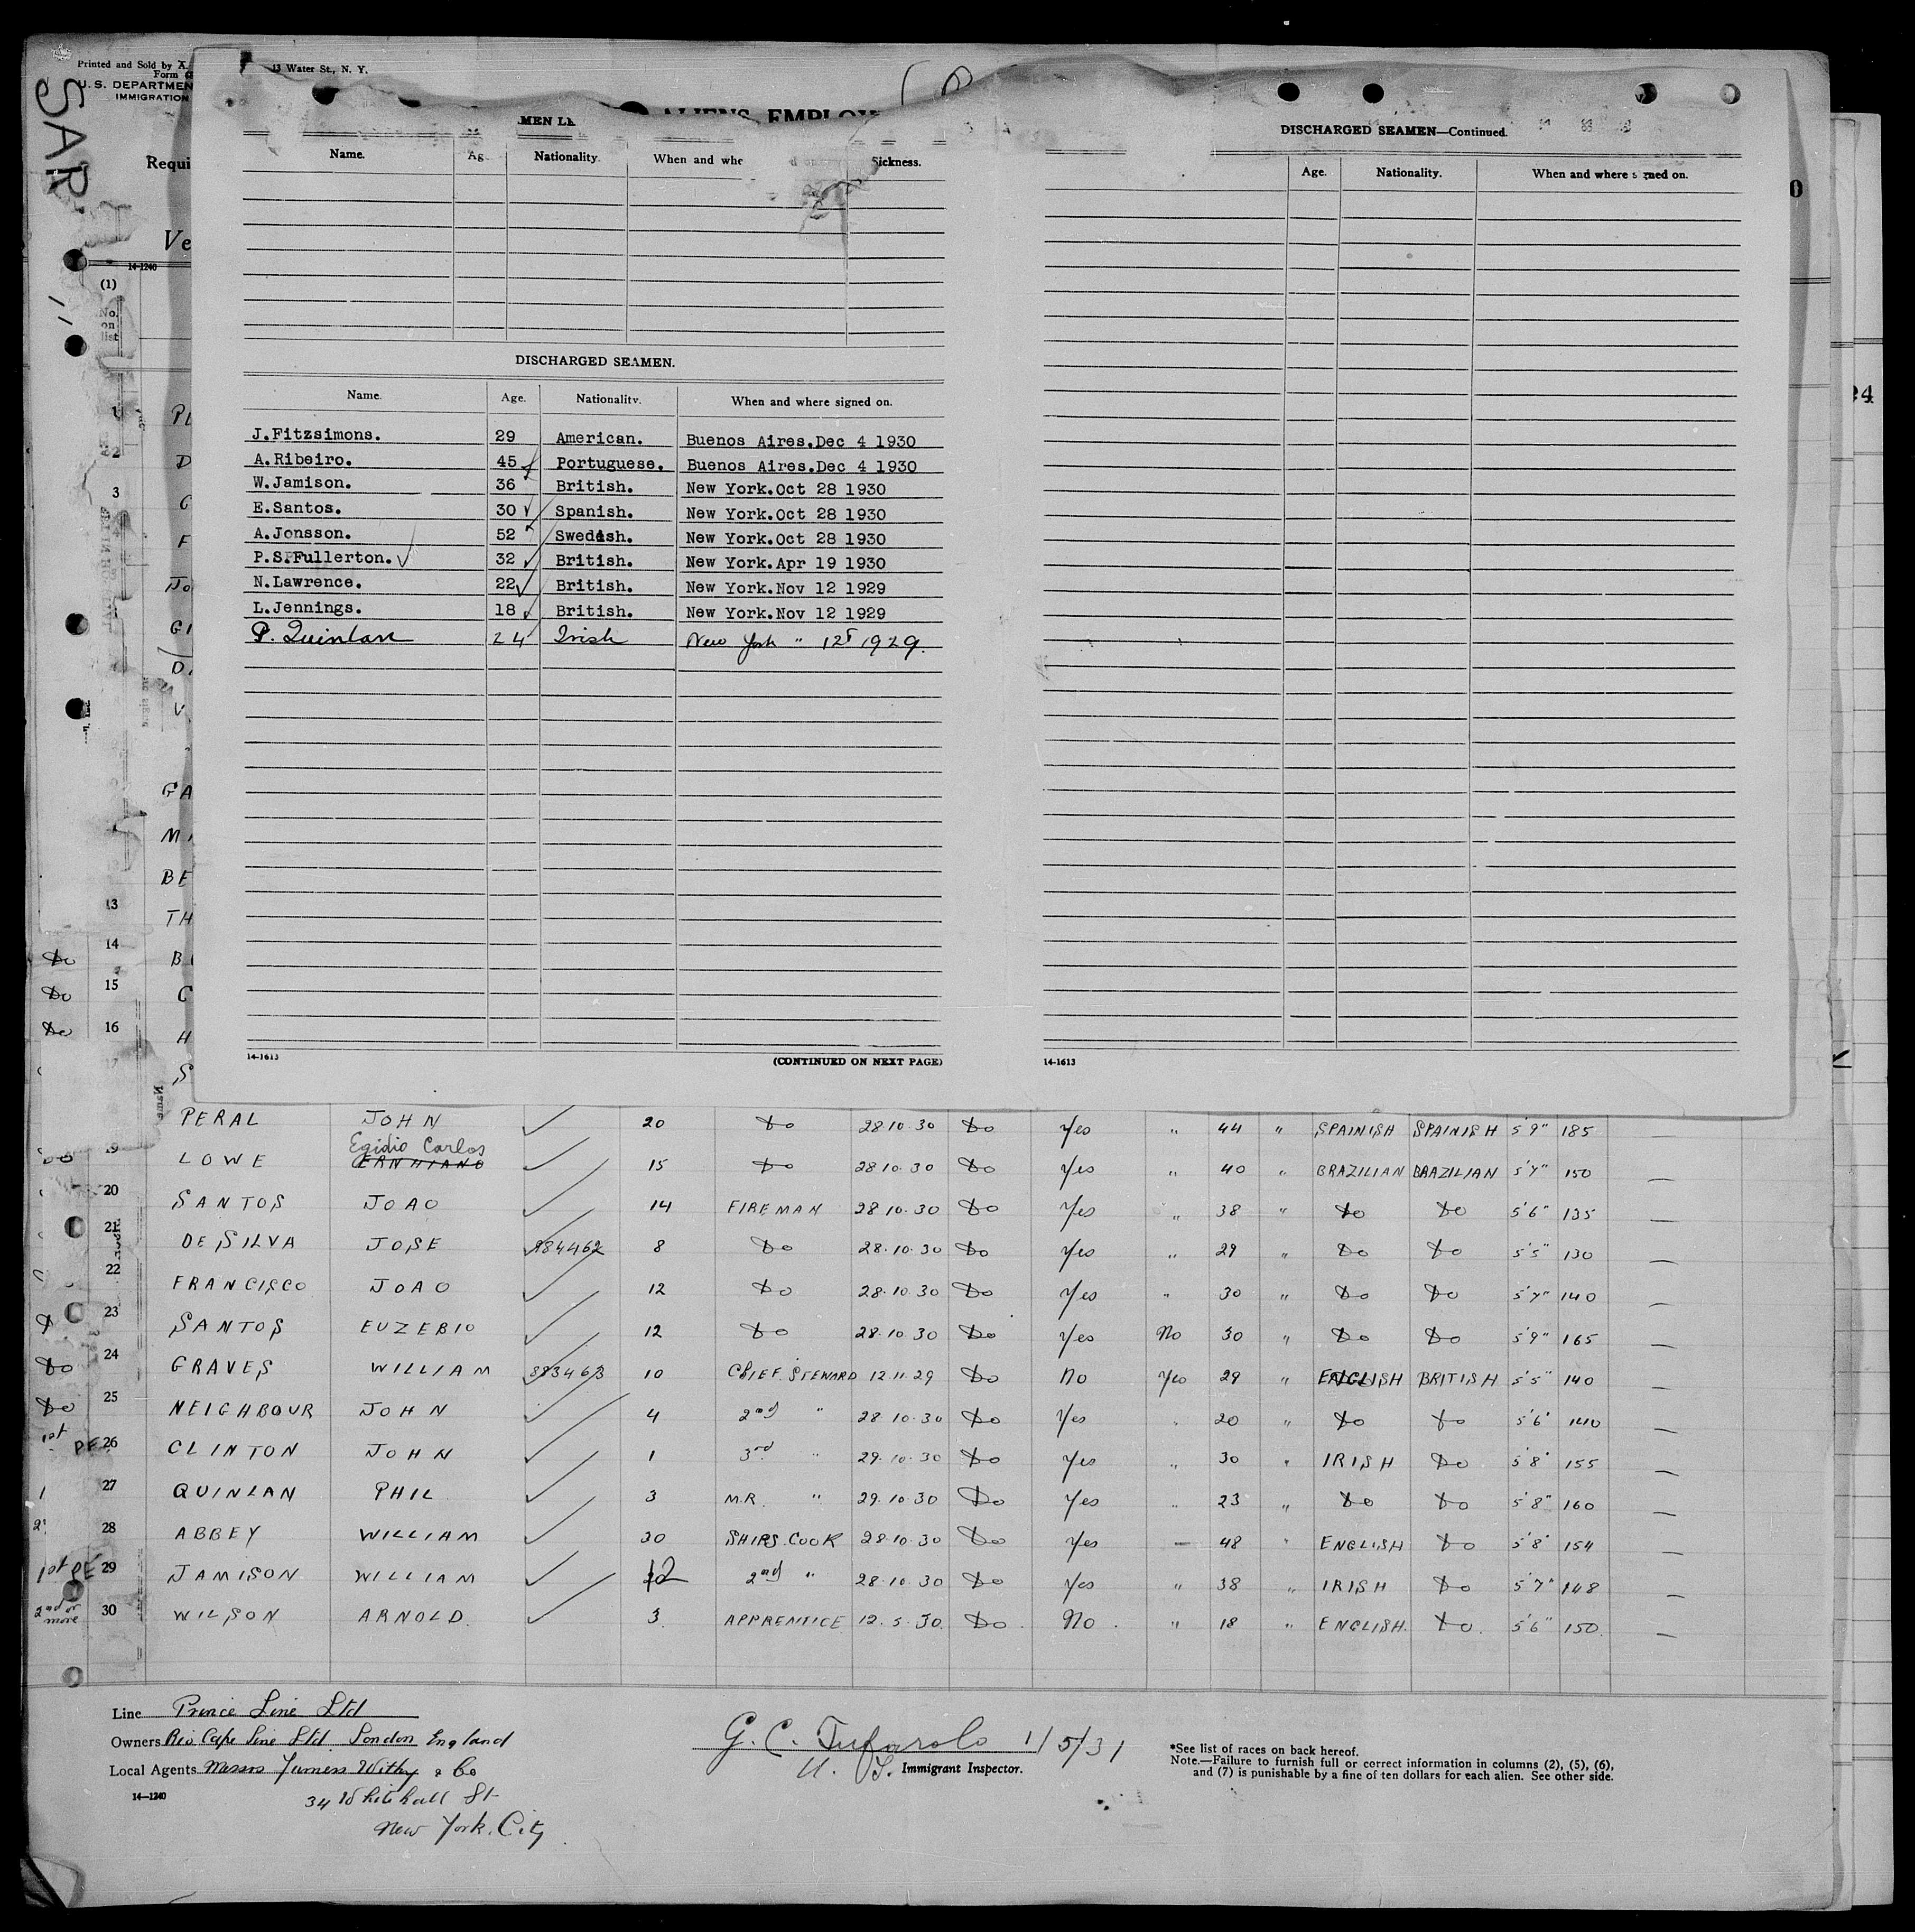 Printed and Sold by A.
13 Water St., N. Y.
Form
U. S. DEPARTMEN
IMMIGRATION
SAR
ALIENS EMPLOY
Requi
Ve
14-1240
(1)
No.
on
list
MEN LE
Name. Ag Nationality. When and whe Sickness.
DISCHARGED SEAMEN.
Name. Age. Nationality. When and where signed on.
J.Fitzsimons. 29 American. Buenos Aires.Dec 4 1930
A.Ribeiro. 45 Portuguese. Buenos Aires.Dec 4 1930
W.Jamison. 36 British. New York.Oct 28 1930
E.Santos. 30 Spanish. New York.Oct 28 1930
A.Jonsson. 52 Swedish. New York.Oct 28 1930
P.S.Fullerton. 32 British. New York.Apr 19 1930
N.Lawrence. 22 British. New York.Nov 12 1929
L.Jennings. 18 British. New York.Nov 12 1929
P. Quinlan 24 Irish New York " 12 1929.
14-1613 (CONTINUED ON NEXT PAGE)
DISCHARGED SEAMEN—Continued.
Age. Nationality. When and where signed on.
14-1613
24
1 PL
2 D
3 C
F
Jo
GI
D
V
GA
M
BE
13 TH
Do 14 B
Do 15 C
Do 16 H
S
PERAL JOHN 20 Do 28 10 30 Do Yes " 44 " SPAINISH SPAINISH 5'9" 185 —
Egidio Carlos
19 LOWE ERNHIANO 15 Do 28 10 30 Do Yes " 40 " BRAZILIAN BRAZILIAN 5'7" 150 —
20 SANTOS JOAO 14 FIREMAN 28 10 30 Do Yes " 38 " Do Do 5'6" 135 —
21 DE SILVA JOSE 984462 8 Do 28.10.30 Do Yes " 29 " Do Do 5'5" 130 —
22 FRANCISCO JOAO 12 Do 28.10.30 Do Yes " 30 " Do Do 5'7" 140 —
23 SANTOS EUZEBIO 12 Do 28.10.30 Do Yes No 30 " Do Do 5'9" 165 —
Do 24 GRAVES WILLIAM 883463 10 CHIEF STEWARD 12.11.29 Do No Yes 29 " ENGLISH BRITISH 5'5" 140 —
Do 25 NEIGHBOUR JOHN 4 2nd " 28.10.30 Do Yes " 20 " Do Do 5'6" 140 —
1st DE 26 CLINTON JOHN 1 3rd " 29.10.30 Do Yes " 30 " IRISH Do 5'8" 155 —
1 27 QUINLAN PHIL 3 M.R. " 29.10.30 Do Yes " 23 " Do Do 5'8" 160 —
28 ABBEY WILLIAM 30 SHIPS COOK 28.10.30 Do Yes — 48 " ENGLISH Do 5'8" 154 —
1st DE 29 JAMISON WILLIAM 12 2nd " 28.10.30 Do Yes " 38 " IRISH Do 5'7" 148 —
2nd or more 30 WILSON ARNOLD. 3 APPRENTICE 12.5.30. Do. No. " 18 " ENGLISH. Do. 5'6" 150. —
Line Prince Line Ltd
Owners Rio Cape Line Ltd London England
Local Agents Messrs Furness Withy & Co
34 Whitehall St
New York. City
14—1240
G. C. Tufarolo 1/5/31
U. S. Immigrant Inspector.
*See list of races on back hereof.
Note.—Failure to furnish full or correct information in columns (2), (5), (6),
and (7) is punishable by a fine of ten dollars for each alien. See other side.